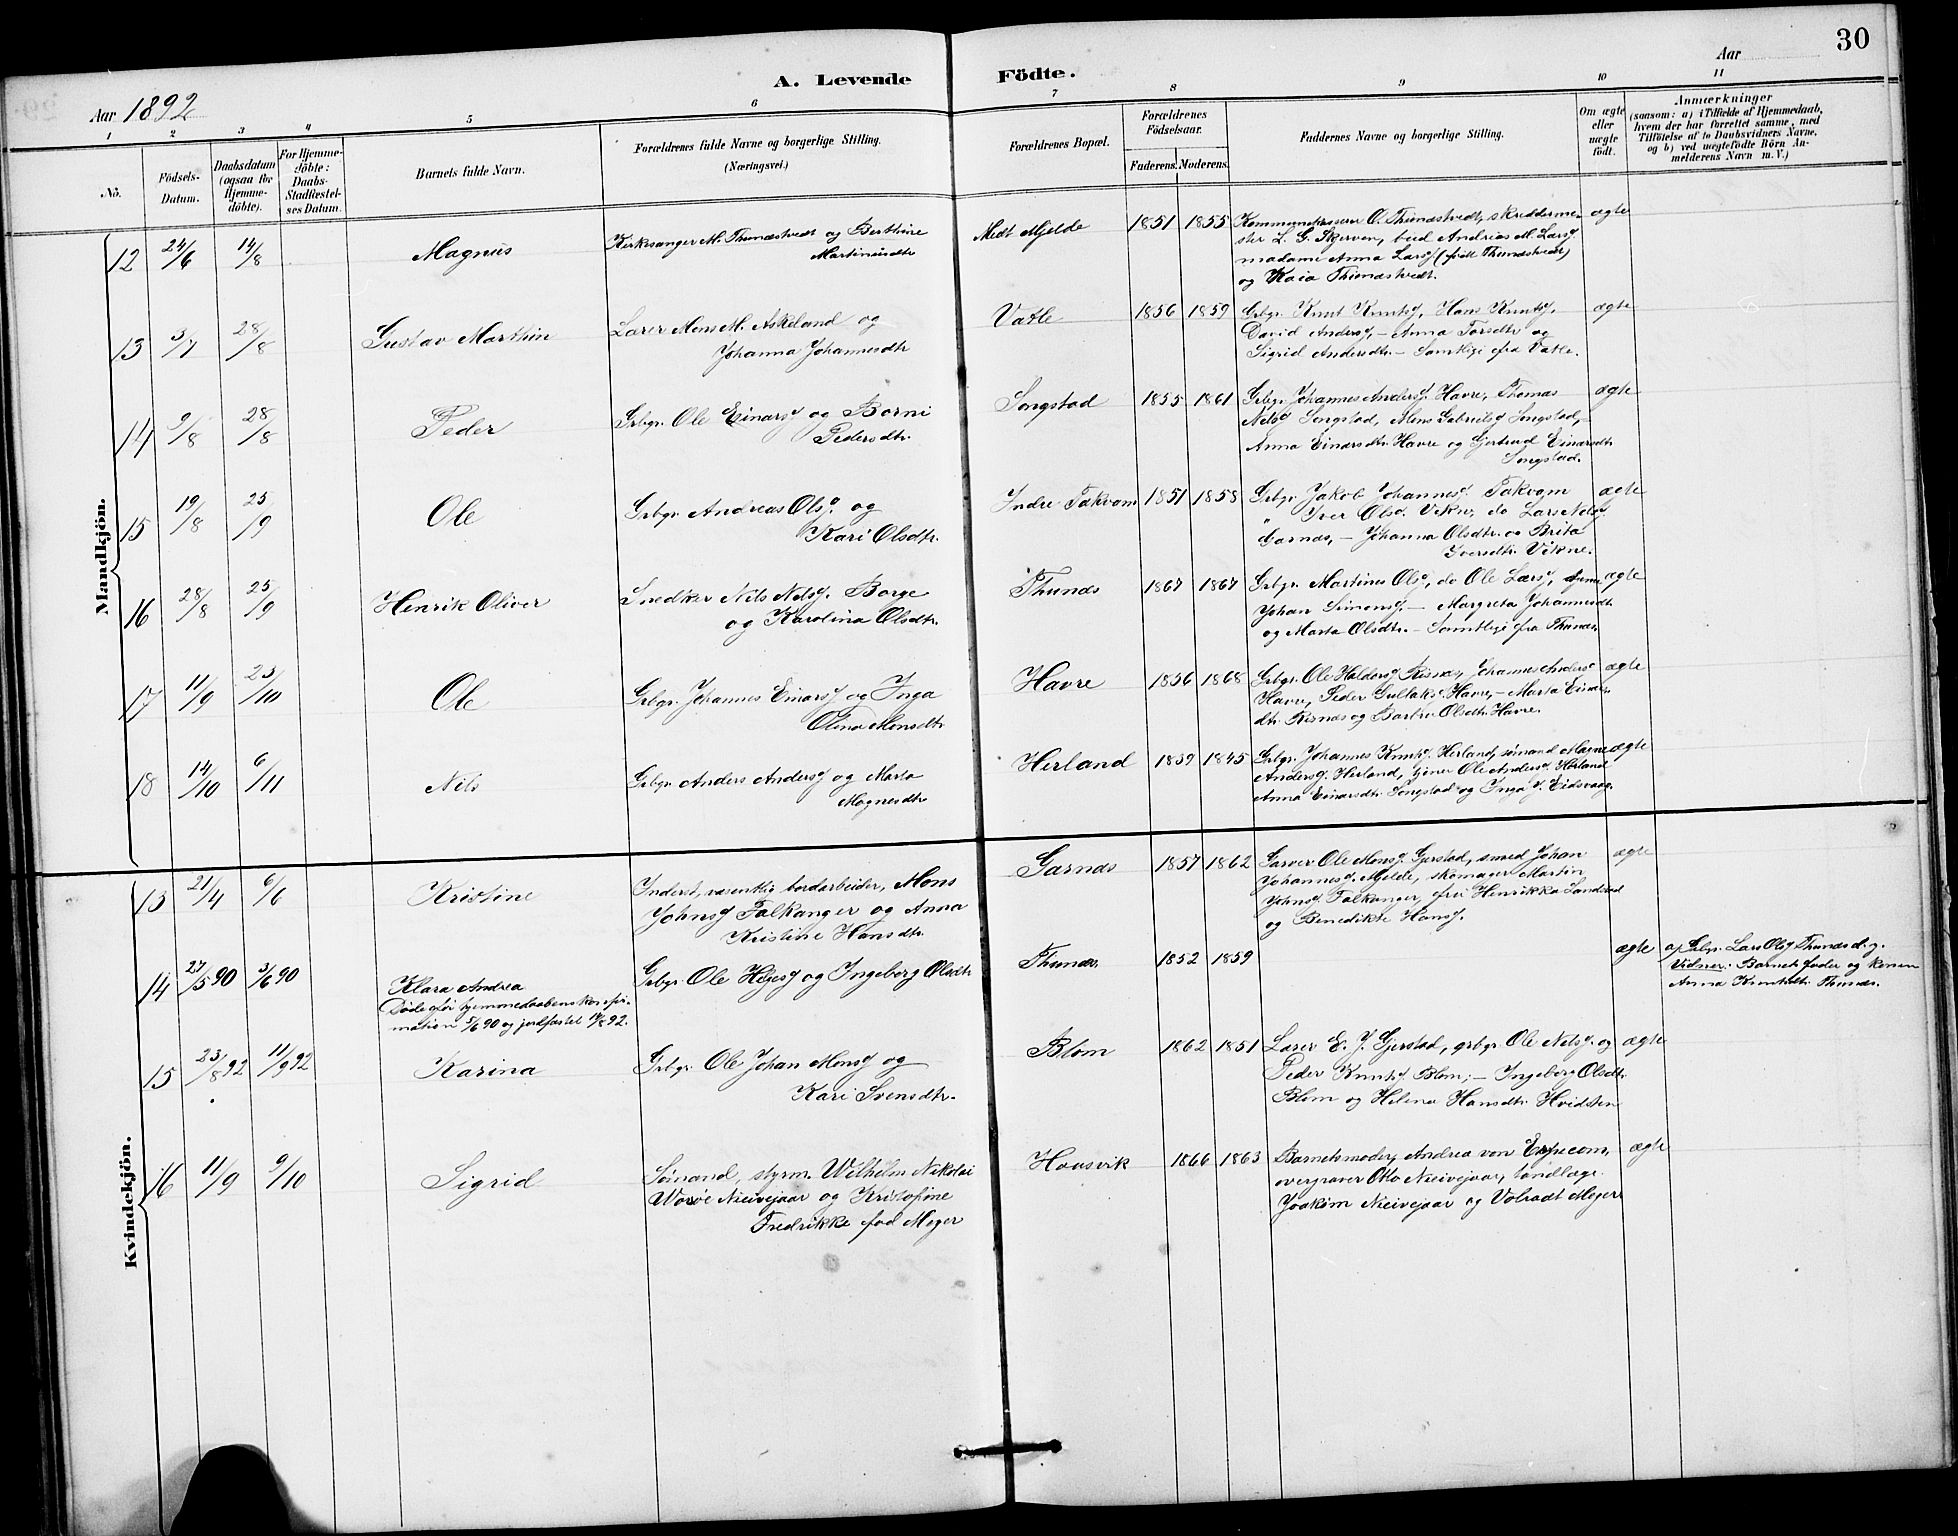 30
A. Levende Födte.
Aar 1892
Aar
1 2 3 4 5 6 7 8 9 10 11
No.
Födsels-
Datum.
Daabsdatum
(ogsaa for
Hjemme-
döbte).
For Hjemme-
döbte:
Daabs-
Stadfæstel-
ses Datum.
Barnets fulde Navn.
Forældrenes fulde Navne og borgerlige Stilling.
(Næringsvei.)
Forældrenes Bopæl.
Forældrenes
Födselsaar.
Faderens. Moderens.
Faddernes Navne og borgerlige Stilling.
Om ægte
eller
uægte
födt.
Anmærkninger
(saasom: a) i Tilfælde af Hjemmedaab,
hvem der har forrettet samme, med
Tilföielse af to Daabsvidners Navne,
og b) ved uægtefödte Börn An-
melderens Navn m. V.)
Mandkjön.
12 24/6 14/8 Magnus
Kirkesanger M. Thunæstvedt og Berthine
Martinusdtr
Midt Mjelde 1851 1855
Kommunekasserer O. Thunæstvedt, skrædderme-
ster L. G. Skjerven, bud Andreas M. Larsø,
madame Anna Larsø (født Thunæstvedt)
og Kaia Thunæstvedt.
ægte
13 3/7 28/8 Gustav Marthin
Lærer Mons M. Askeland og
Johanna Johannesdtr
Vatle 1856 1859
Grbgr. Knut Knutsø, Hans Knutsø,
David Andersø, – Anna Torsdtr og
Sigrid Andersdtr. – Samtlige fra Vatle.
ægte
14 9/8 28/8 Peder
Grbgr. Ole Einarsø og Borni
Pedersdtr.
Songstad 1855 1861
Grbgr. Johannes Andersø Havre, Thomas
Nelsø Songstad, Mons Gabrielsø Songstad, –
Anna Einarsdtr. Havre og Gjertrud Einarsdtr
Songstad.
ægte
15 19/8 25/9 Ole
Grbgr. Andreas Olsø. og
Kari Olsdtr.
Indre Takvam 1851 1858
Grbgr. Jakob Johannesø. Takvam
" Iver Olsø. Vikne, do Lars Nelsø
Garnæs, – Johanna Olsdtr. og Brita
Iversdtr. Vikne.
ægte
16 28/8 25/9 Henrik Oliver
Snedker Nils Nelsø. Borge
og Karolina Olsdtr.
Thunæs 1867 1867
Grbgr. Martines Olsø, do Ole Larsø,
Johan Simonsø, – Margreta Johannesdtr.
og Marta Olsdtr. – Samtlige fra Thunæs.
ægte
17 11/9 23/10 Ole
Grbgr. Johannes Einarsø og Inga
Olina Monsdtr.
Havre 1856 1868
Grbgr. Ole Haldorsø Risnæs, Johannes Andersø
Havre, Peder Gullaksø. Havre, – Marta Einars-
dtr. Risnæs og Barbro Olsdtr. Havre.
ægte
18 14/10 6/11 Nils
Grbgr. Anders Andersø og Marta
Magnesdtr.
Herland 1839 1845
Grbgr. Johannes Knutsø. Herland, sømand Magne
Andersø. Herland, tjener Ole Andersø. Herland
Anna Einarsdtr. Songstad og Inga J. Eidsvaag.
ægte
Kvindekjön.
13 21/4 6/6 Kristine
Inderst, væsentlig bordarbeider, Mons
Johnsø Falkanger og Anna
Kristine Hansdtr.
Garnæs 1857 1862
Garver Ole Monsø. Gjerstad, smed Johan
Johannesø. Mjelde, skomager Martin
Johnsø. Falkanger, frøi Henrikka
og Benedikte Hansø.
ægte
14 27/5 90 3/6 90 Klara Andrea
Døde før hjemmedaabens konfir-
mation 5/6 90 og jordfæstet 14/8 92.
Grbgr. Ole Helgesø og Ingeborg Olsdtr.
Thunæs 1852 1859
ægte
a) Grbgr. Lars Olsø Thunæs d. y.
Vidner: Barnets fader og konen
Anna Knutsdtr. Thunæs.
15 23/8 92 11/9 92 Karina
Grbgr. Ole Johan Monsø og
Kari Svensdtr.
Blom 1862 1851
Lærer E. J. Gjerstad, grbgr. Ole Nelsø. og
Peder Knutsø Blom; – Ingeborg Olsdtr.
Blom og Helena Hansdtr. Hvidsten
ægte
16 11/9 9/10 Sigrid
Sømand, styrm. Wilhelm Nikolai
Worsøe Nieivejaar og Kristofine
Fredrikke fød Meyer
Hausvik 1866 1863
Barnets moder, Andrea von Erpecom,
overgraver Otto Nieivejaar, tandlæge
Joakim Nieivejaar og Volradt Meyer
ægte